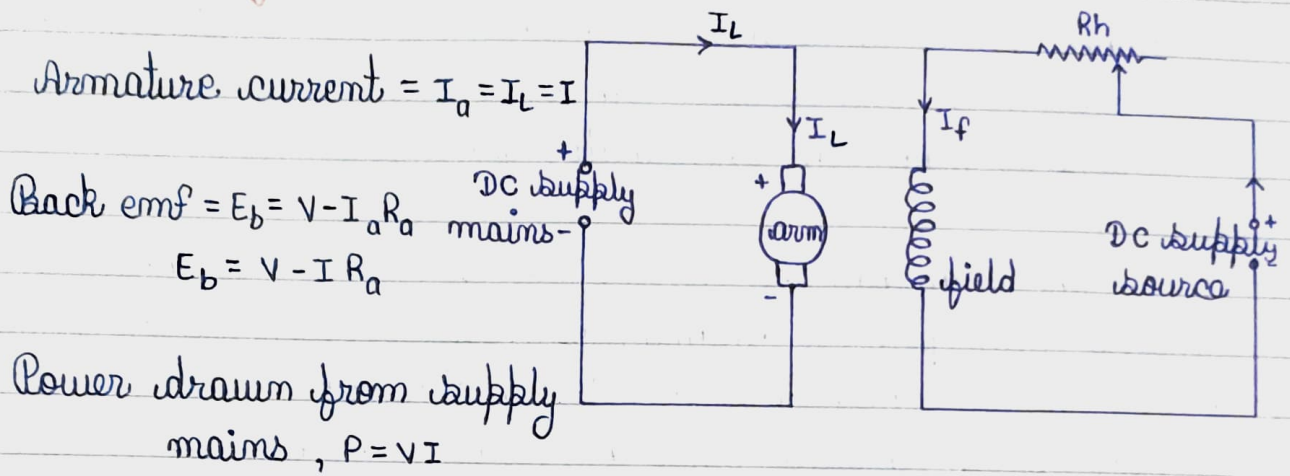 Armature current = Iₐ = I_L = I
Back emf = E_b = V - IₐRₐ
E_b = V - I Rₐ
Power drawn from supply
mains, P = VI
I_L
+
DC supply
mains-
I_L
+
arm
-
Rh
I_f
field
DC supply
source
+
-